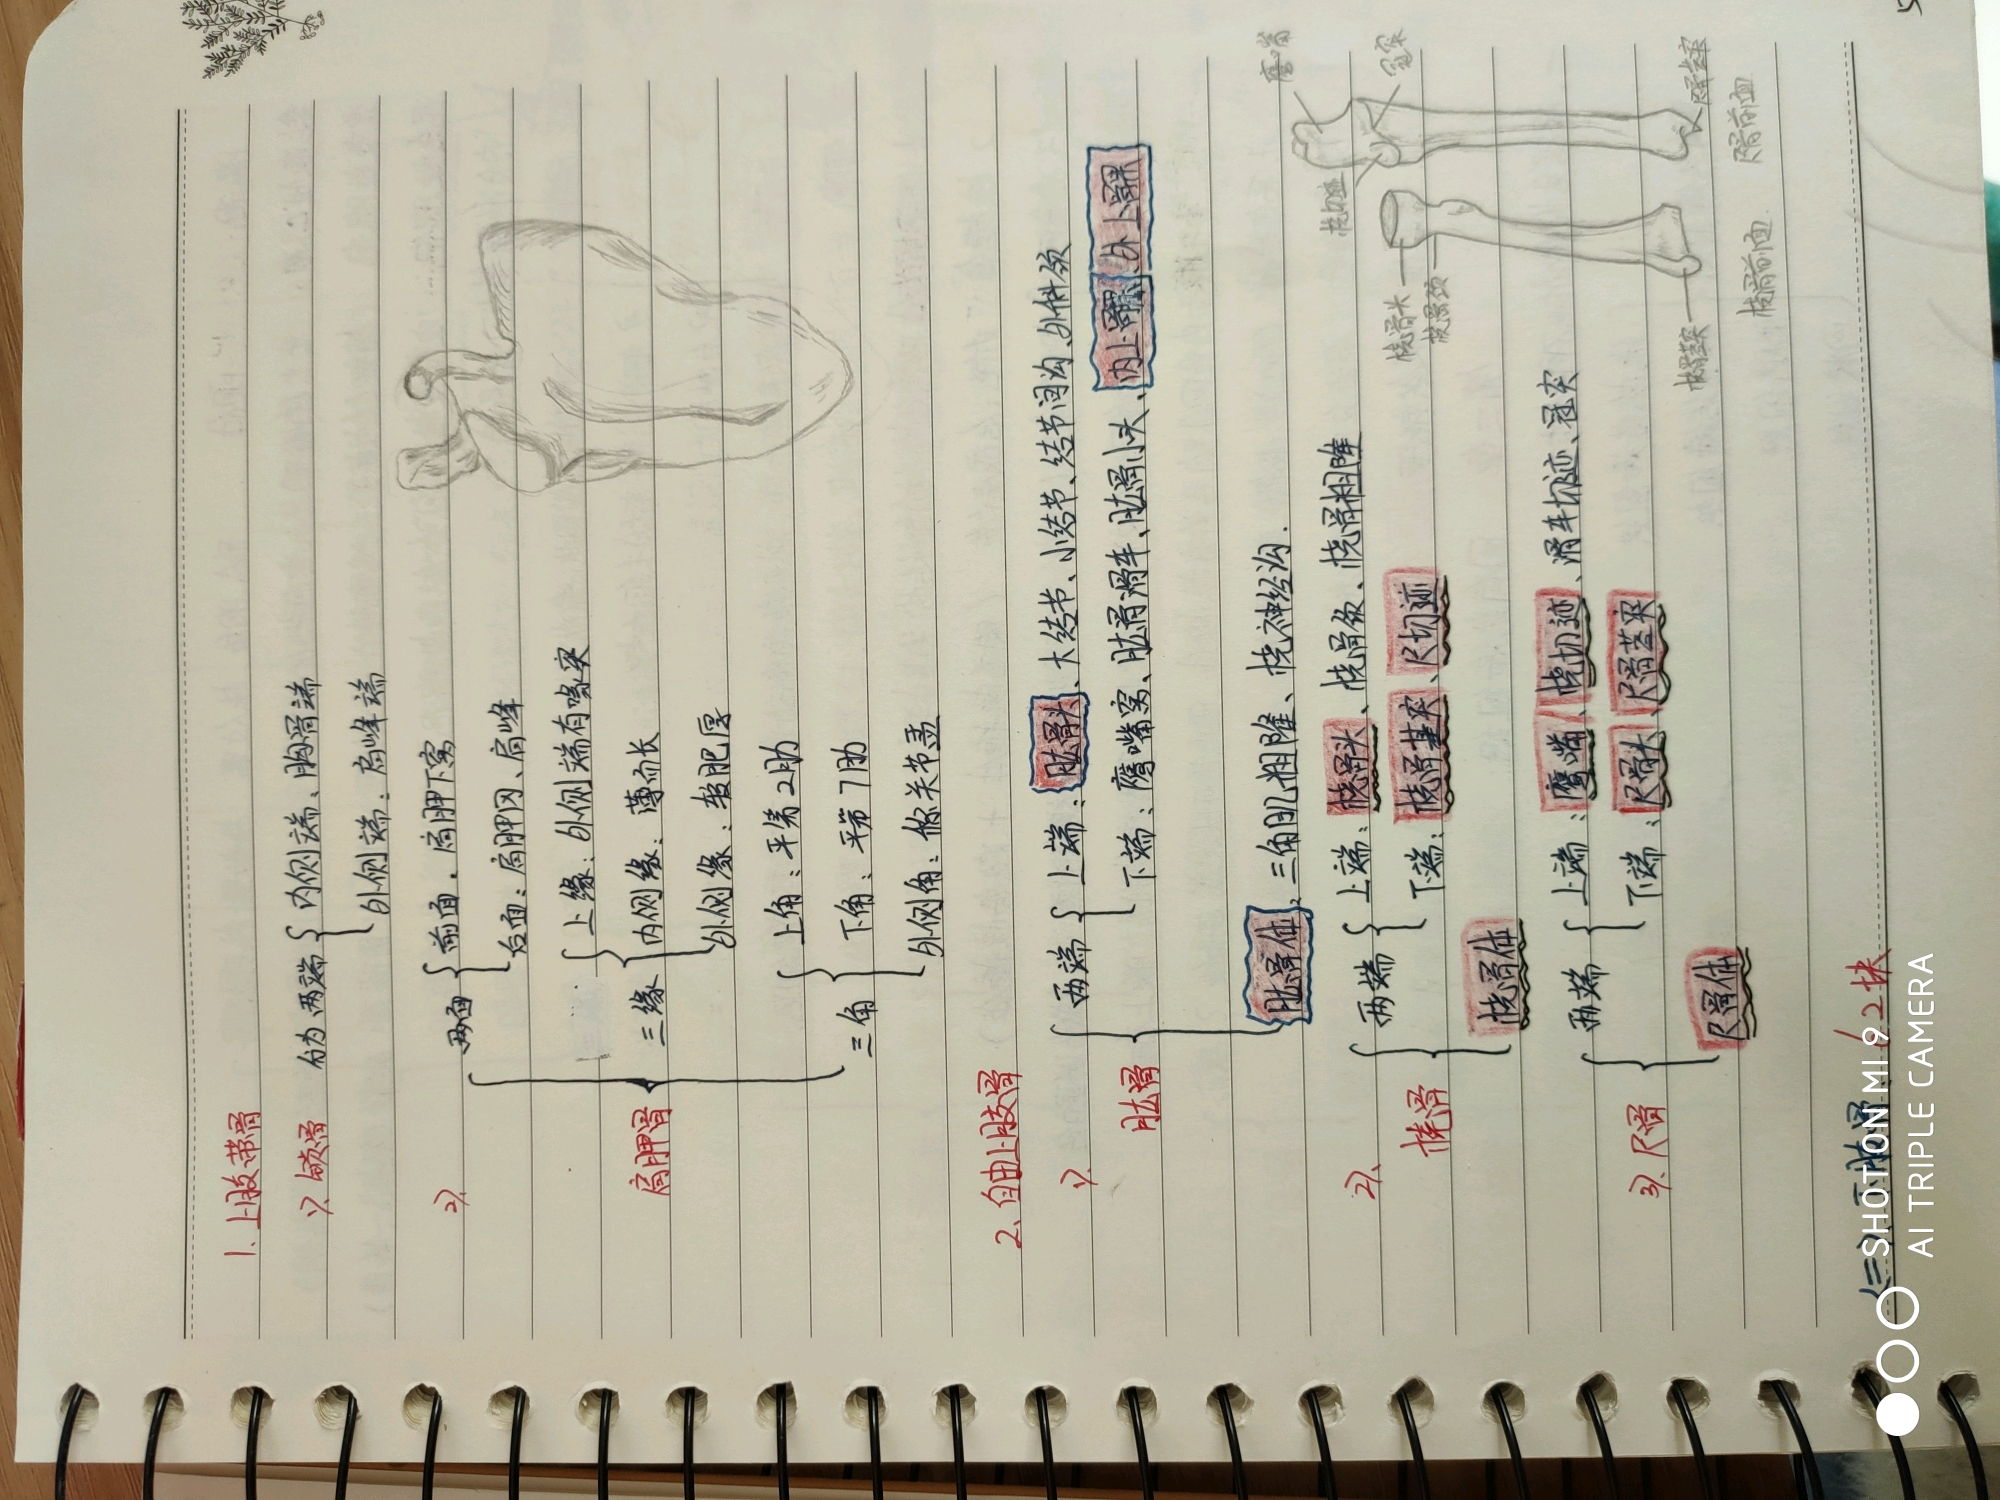 1. 上肢带骨
1). 锁骨 分为两端 内侧端、胸骨端
外侧端：肩峰端
2). 肩胛骨
两面 前面：肩胛下窝
后面：肩胛冈、肩峰
三缘 上缘：外侧端有喙突
内侧缘：薄而长
外侧缘：肥厚
三角 上角：平第2肋
下角：平第7肋
外侧角：关节盂
2. 自由上肢骨
1). 肱骨
两端 上端：肱骨头、大结节、小结节、结节间沟、外科颈
下端：鹰嘴窝、肱骨滑车、肱骨小头、内上髁、外上髁
肱骨体：三角肌粗隆、桡神经沟.
2). 桡骨
两端 上端：桡骨头、桡骨颈、桡骨粗隆
下端：桡骨茎突、尺切迹
桡骨体
3). 尺骨
两端 上端：鹰嘴、桡切迹、滑车切迹、冠突
下端：尺骨头、尺骨茎突
尺骨体
鹰嘴
冠突
桡切迹
桡骨头
桡骨颈
桡骨茎突
尺骨茎突
桡骨前面
尺骨前面
(二)下肢骨 62块
SHOT ON MI 9
AI TRIPLE CAMERA